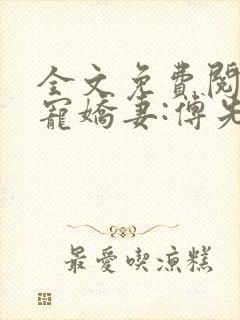 全文免費閱
寵嬌妻:傅先
最愛喫涼糕